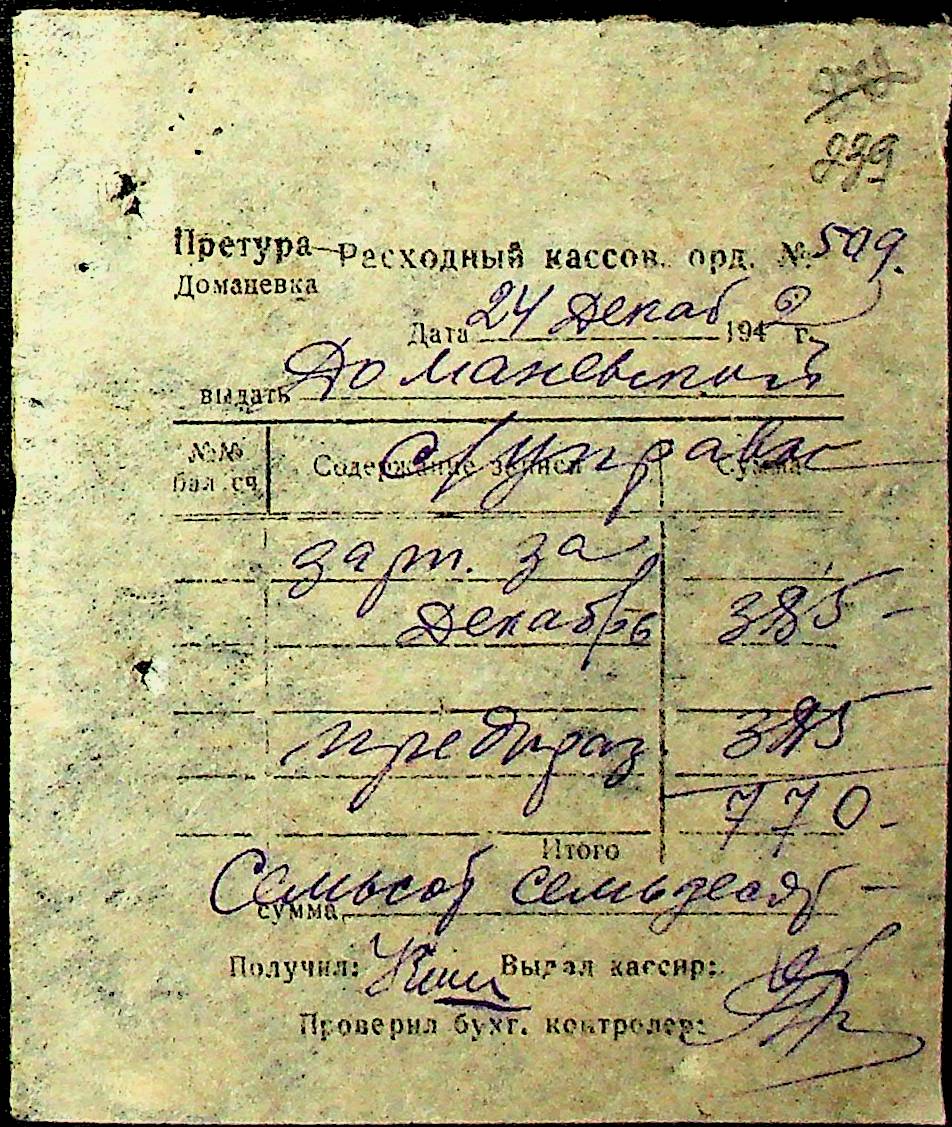 239
Претура Расходный кассов. орд. № 509.
Доманевка
Дата 24 декаб 1942 г.
выдать Доманевской
с/управе
№№ бал. сч. Содержание записи Сумма
зарп. за
декабрь 385-
предпраз. 385
770-
Итого
сумма Семьсот семьдесят-
Получил: Выдал кассир:
Проверил бухг. контролер: